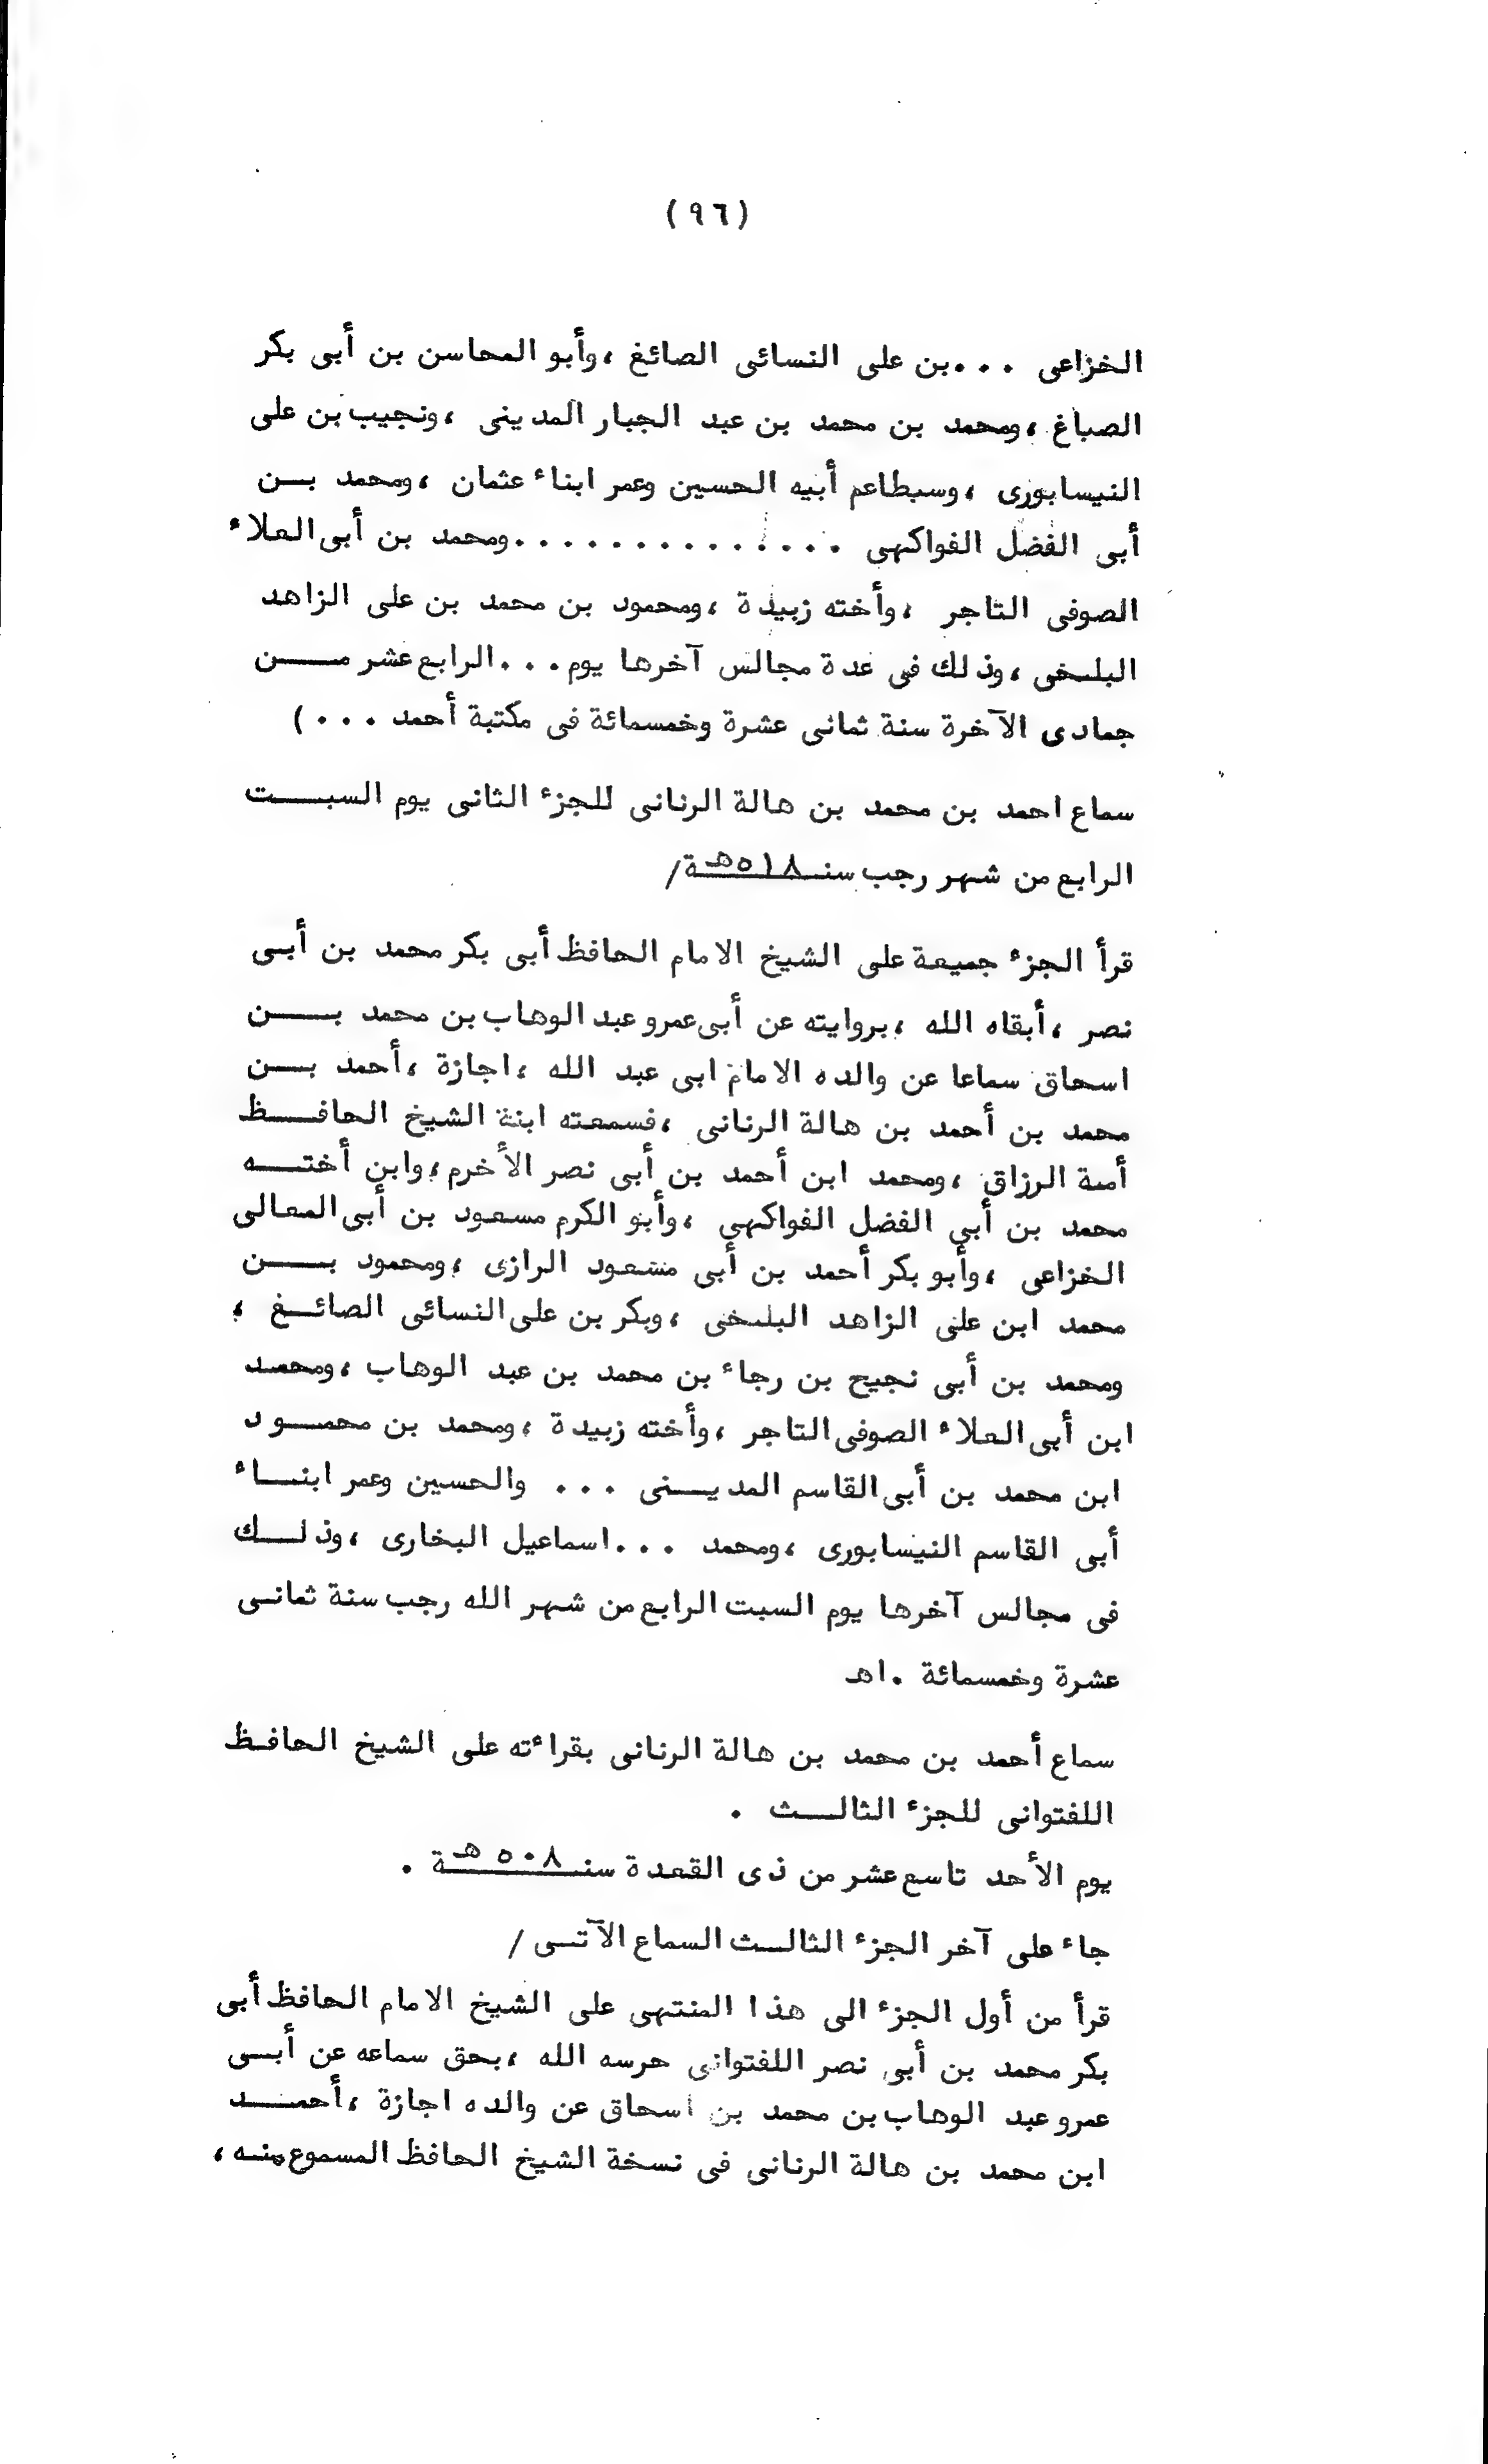 (٩٦)
الخزاعى ...بن على النسائى الصائغ ،وأبو المحاسن بن أبى بكر
الصباغ ،ومحمد بن محمد بن عبد الجبار المدينى ،ونجيب بن على
النيسابورى ،وسبطاعم أبيه الحسين وعمر ابناء عثمان ،ومحمد بــن
أبى الفضل الفواكهى ..............ومحمد بن أبى العلاء
الصوفى التاجر ،وأخته زبيدة ،ومحمود بن محمد بن على الزاهد
البلخى ،وذلك فى عدة مجالس آخرها يوم...الرابع عشر مــــن
جمادى الآخرة سنة ثمانى عشرة وخمسمائة فى مكتبة أحمد ...)
سماع احمد بن محمد بن هالة الرنانى للجزء الثانى يوم السبـــت
الرابع من شهر رجب سنـ٥١٨هـة/
قرأ الجزء جميعة على الشيخ الامام الحافظ أبى بكر محمد بن أبــى
نصر ،أبقاه الله ،بروايته عن أبى عمرو عبد الوهاب بن محمد بـــــن
اسحاق سماعا عن والده الامام ابى عبد الله ،اجازة ،أحمد بـــن
محمد بن أحمد بن هالة الرنانى ،فسمعته ابنة الشيخ الحافـــظ
أمة الرزاق ،ومحمد ابن أحمد بن أبى نصر الأخرم ،وابن أختـــه
محمد بن أبى الفضل الفواكهى ،وأبو الكرم مسعود بن أبى المعالى
الخزاعى ،وأبو بكر أحمد بن أبى مسعود الرازى ،ومحمود بـــــن
محمد ابن على الزاهد البلخى ،وبكر بن على النسائى الصائــغ ،
ومحمد بن أبى نجيح بن رجاء بن محمد بن عبد الوهاب ،ومحمـد
ابن أبى العلاء الصوفى التاجر ،وأخته زبيدة ،ومحمد بن محمــود
ابن محمد بن أبى القاسم المديــنى ... والحسين وعمر ابنــاء
أبى القاسم النيسابورى ،ومحمد ...اسماعيل البخارى ،وذلــك
فى مجالس آخرها يوم السبت الرابع من شهر الله رجب سنة ثمانـى
عشرة وخمسمائة .اهـ
سماع أحمد بن محمد بن هالة الرنانى بقراءته على الشيخ الحافـظ
اللفتوانى للجزء الثالــث .
يوم الأحد تاسع عشر من ذى القعدة سنـ٥٠٨هـة .
جاء على آخر الجزء الثالـث السماع الآتـى /
قرأ من أول الجزء الى هذا المنتهى على الشيخ الامام الحافظ أبى
بكر محمد بن أبى نصر اللفتوانى حرسه الله ،بحق سماعه عن أبــى
عمرو عبد الوهاب بن محمد بن اسحاق عن والده اجازة ،أحمـــد
ابن محمد بن هالة الرنانى فى نسخة الشيخ الحافظ المسموع منـه ،